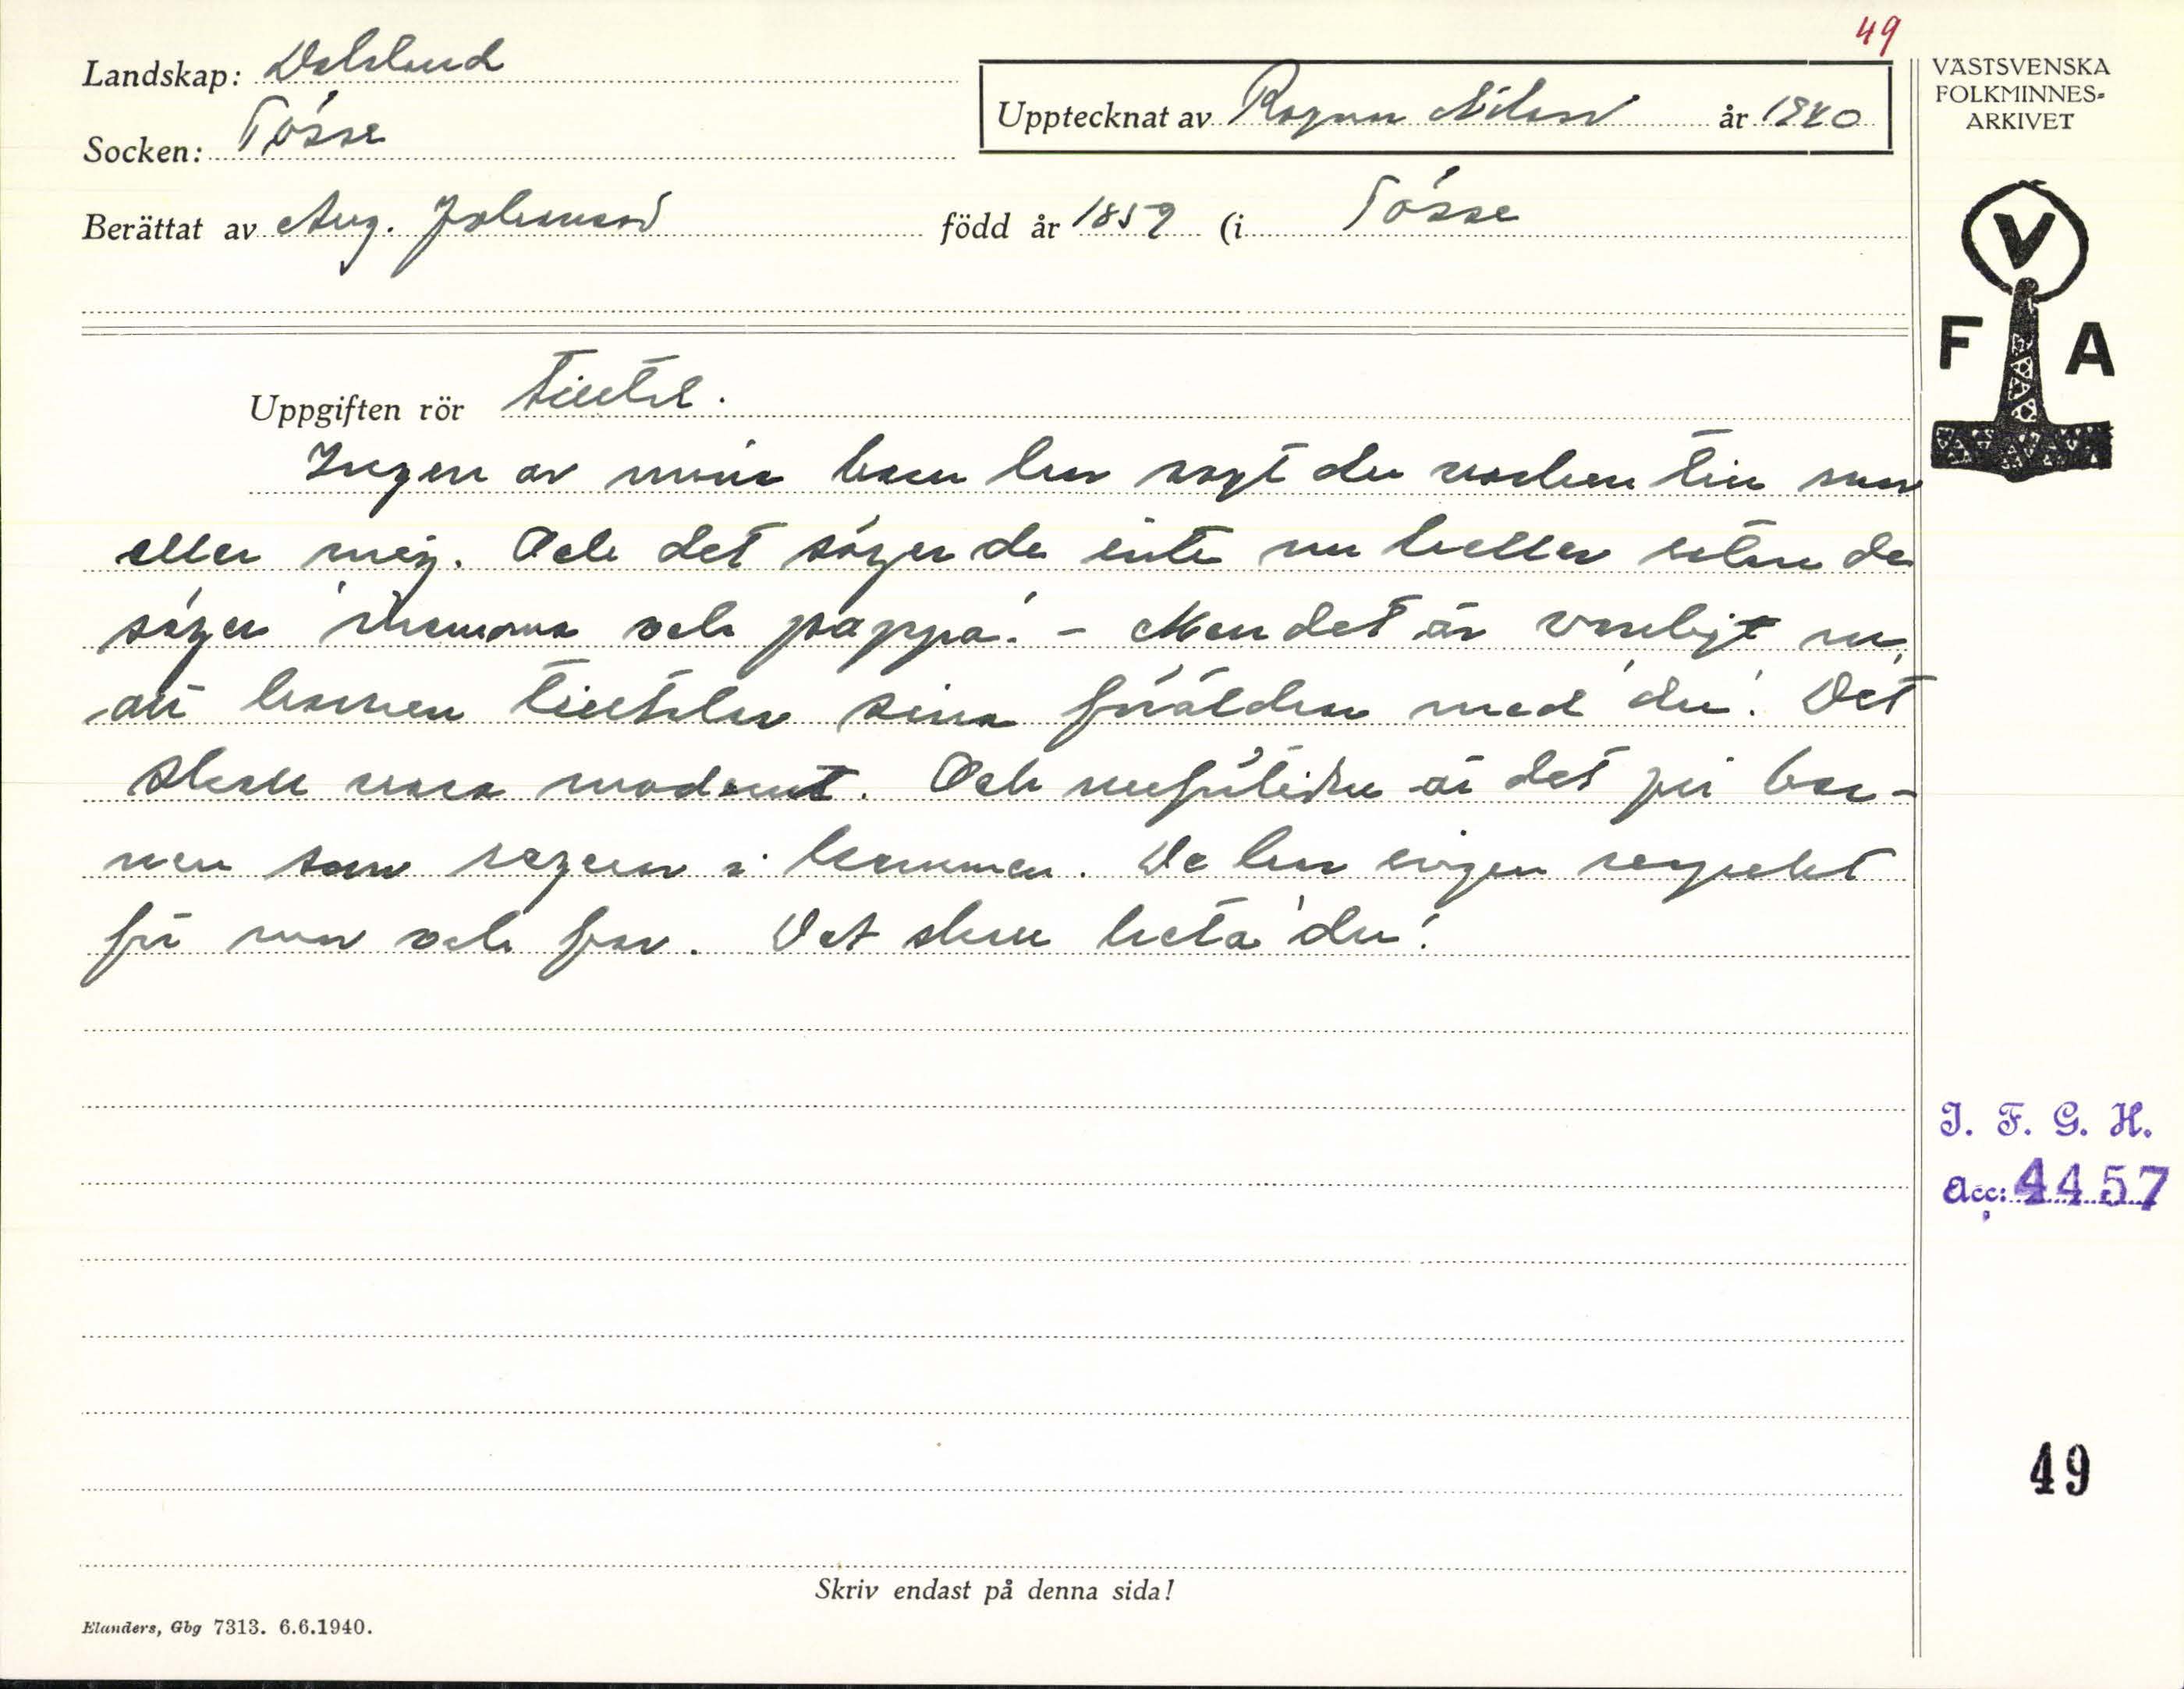 49
Landskap: Dalsland
Socken: Tösse
Upptecknat av Ragnar Nilsson år 1940
Berättat av Aug. Johansson född år 1859 (i Tösse
VÄSTSVENSKA
FOLKMINNES-
ARKIVET
V
F A
Uppgiften rör Titel.
Ingen av mina barn har sagt du varken till mor
eller mig. Och det säger de inte nu heller utan de
säger 'mamma och pappa'. - Men det är vanligt nu,
att barnen titulerar sina föräldrar med 'du'. Det
skall vara modernt. Och nuförtiden är det ju bar-
nen som regerar i hemmen. De har ingen respekt
för mor och far. Det skall heta 'du'.
I. F. G. H.
Acc: 4457
49
Skriv endast på denna sida!
Elanders, Gbg 7313. 6.6.1940.